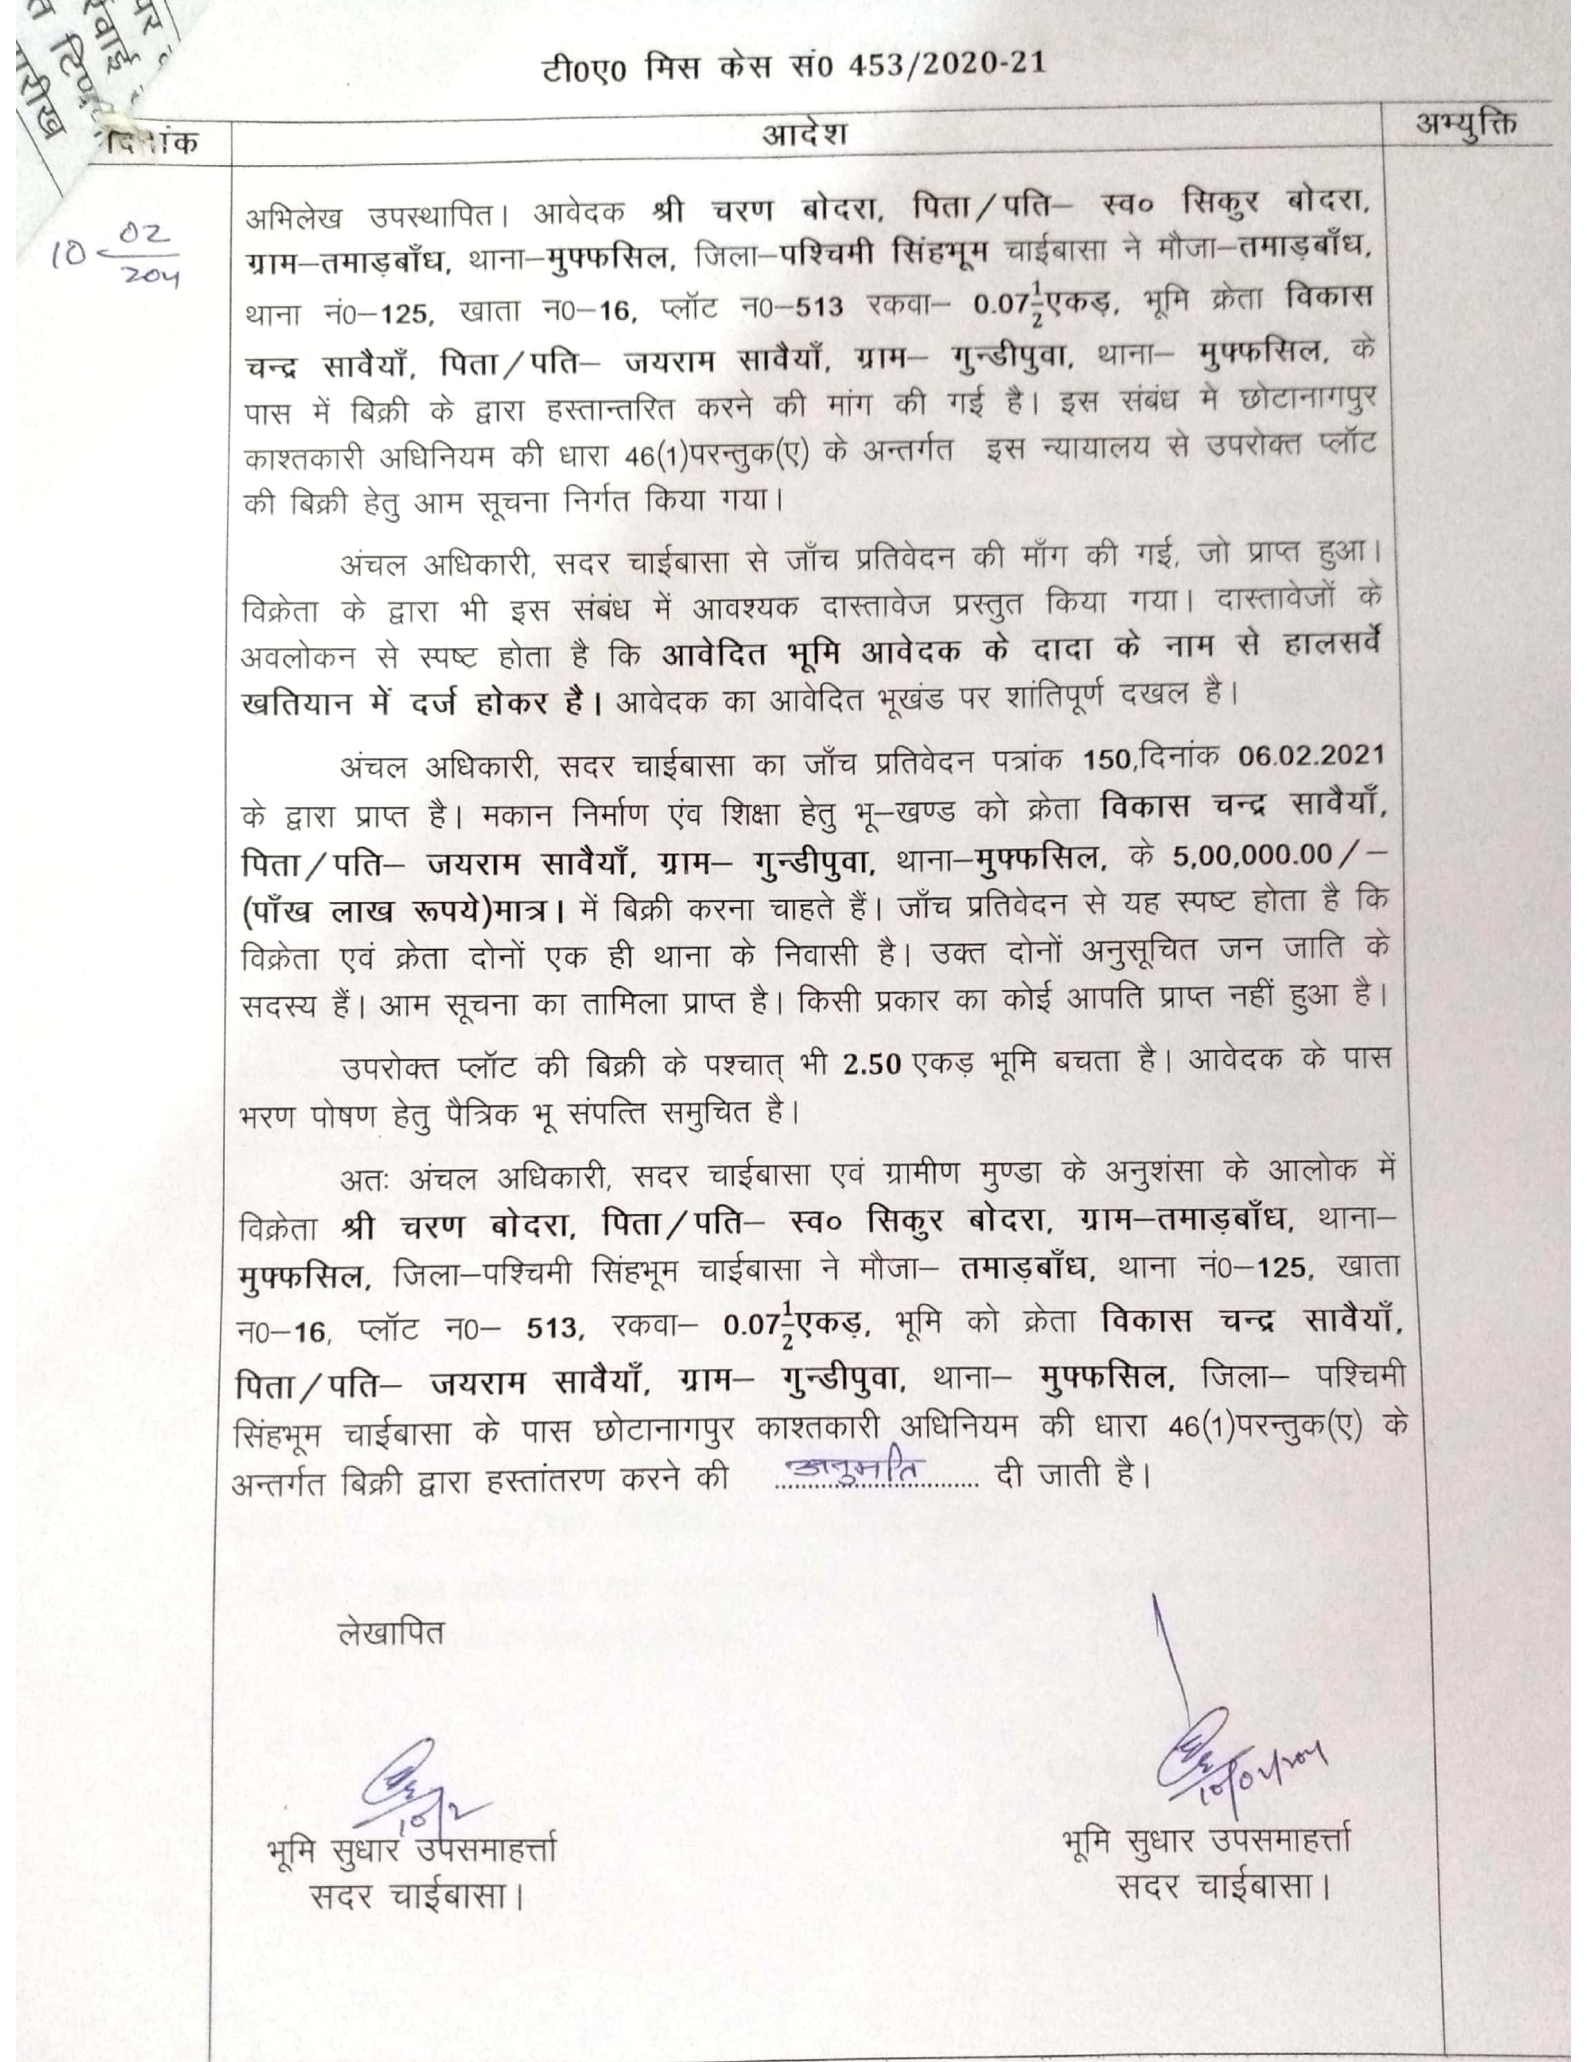 टी0ए0 मिस केस सं0 453/2020-21
दिनांक
आदेश
अभ्युक्ति
10-02
अभिलेख उपस्थापित। आवेदक श्री चरण बोदरा, पिता/पति– स्व० सिकुर बोदरा,
ग्राम–तमाड़बाँध, थाना–मुफ्फसिल, जिला–पश्चिमी सिंहभूम चाईबासा ने मौजा–तमाड़बाँध,
थाना नं0–125, खाता न0–16, प्लॉट न0–513 रकवा– 0.07½एकड़, भूमि क्रेता विकास
चन्द्र सावैयाँ, पिता/पति– जयराम सावैयाँ, ग्राम– गुन्डीपुवा, थाना– मुफ्फसिल, के
पास में बिक्री के द्वारा हस्तान्तरित करने की मांग की गई है। इस संबंध मे छोटानागपुर
काश्तकारी अधिनियम की धारा 46(1)परन्तुक(ए) के अन्तर्गत इस न्यायालय से उपरोक्त प्लॉट
की बिक्री हेतु आम सूचना निर्गत किया गया।
अंचल अधिकारी, सदर चाईबासा से जाँच प्रतिवेदन की माँग की गई, जो प्राप्त हुआ।
विक्रेता के द्वारा भी इस संबंध में आवश्यक दास्तावेज प्रस्तुत किया गया। दास्तावेजों के
अवलोकन से स्पष्ट होता है कि आवेदित भूमि आवेदक के दादा के नाम से हालसर्वे
खतियान में दर्ज होकर है। आवेदक का आवेदित भूखंड पर शांतिपूर्ण दखल है।
अंचल अधिकारी, सदर चाईबासा का जाँच प्रतिवेदन पत्रांक 150,दिनांक 06.02.2021
के द्वारा प्राप्त है। मकान निर्माण एंव शिक्षा हेतु भू–खण्ड को क्रेता विकास चन्द्र सावैयाँ,
पिता/पति– जयराम सावैयाँ, ग्राम– गुन्डीपुवा, थाना–मुफ्फसिल, के 5,00,000.00/–
(पाँख लाख रूपये)मात्र। में बिक्री करना चाहते हैं। जाँच प्रतिवेदन से यह स्पष्ट होता है कि
विक्रेता एवं क्रेता दोनों एक ही थाना के निवासी है। उक्त दोनों अनुसूचित जन जाति के
सदस्य हैं। आम सूचना का तामिला प्राप्त है। किसी प्रकार का कोई आपति प्राप्त नहीं हुआ है।
उपरोक्त प्लॉट की बिक्री के पश्चात् भी 2.50 एकड़ भूमि बचता है। आवेदक के पास
भरण पोषण हेतु पैत्रिक भू संपत्ति समुचित है।
अतः अंचल अधिकारी, सदर चाईबासा एवं ग्रामीण मुण्डा के अनुशंसा के आलोक में
विक्रेता श्री चरण बोदरा, पिता/पति– स्व० सिकुर बोदरा, ग्राम–तमाड़बाँध, थाना–
मुफ्फसिल, जिला–पश्चिमी सिंहभूम चाईबासा ने मौजा– तमाड़बाँध, थाना नं0–125, खाता
न0–16, प्लॉट न0– 513, रकवा– 0.07½एकड़, भूमि को क्रेता विकास चन्द्र सावैयाँ,
पिता/पति– जयराम सावैयाँ, ग्राम– गुन्डीपुवा, थाना– मुफ्फसिल, जिला– पश्चिमी
सिंहभूम चाईबासा के पास छोटानागपुर काश्तकारी अधिनियम की धारा 46(1)परन्तुक(ए) के
अन्तर्गत बिक्री द्वारा हस्तांतरण करने की अनुमति दी जाती है।
लेखापित
10/2
भूमि सुधार उपसमाहर्त्ता
सदर चाईबासा।
भूमि सुधार उपसमाहर्त्ता
सदर चाईबासा।